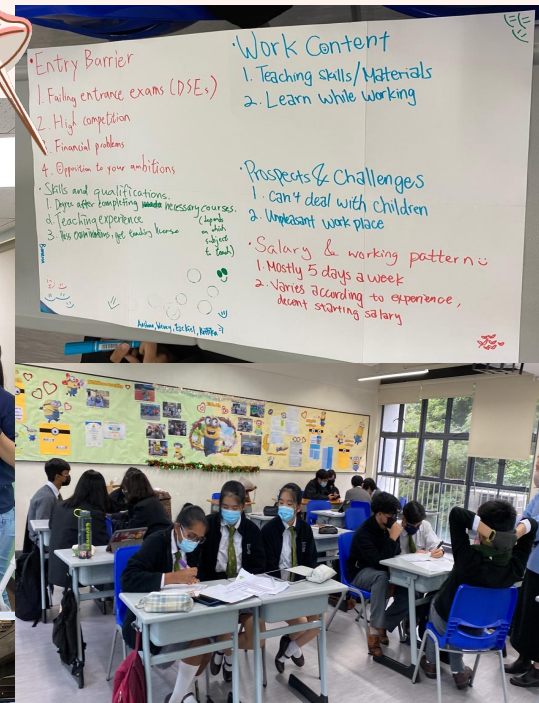 ·Entry Barrier
1. Failing entrance exams (DSEs)
2. High competition
3. Financial problems
4. Opposition to your ambitions
·Skills and qualifications.
1. Degree after completing necessary courses.
(depends on which subject to teach)
2. Teaching experience
3. Pass examinations, get teaching license
·Work Content
1. Teaching skills/Materials
2. Learn while working
Prospects & Challenges
1. Can't deal with children
2. Unpleasant work place
·Salary & working pattern
1. Mostly 5 days a week
2. Varies according to experience,
decent starting salary